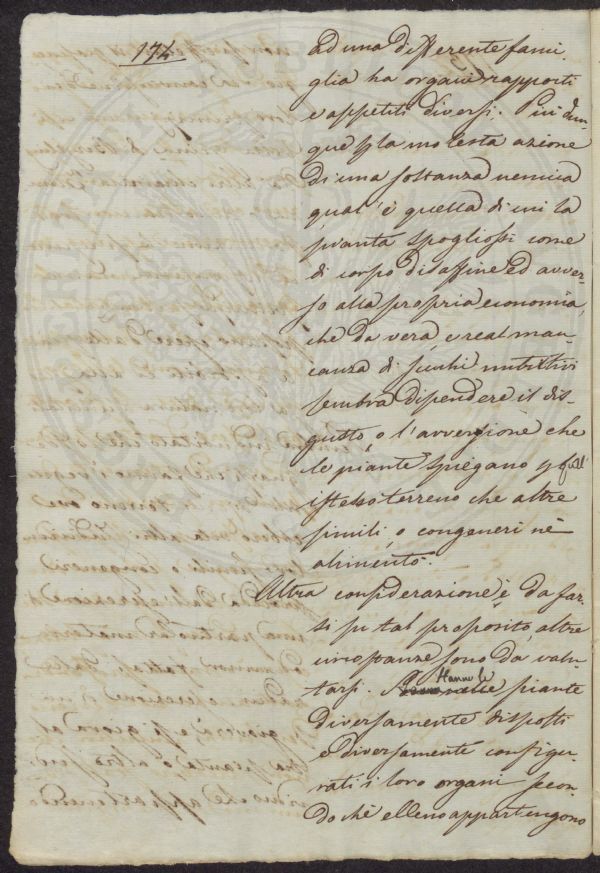 174
ad una differente fami-
glia ha organi rapporti
e appetiti diversi. Più dun-
que p la molesta azione
di una sostanza nemica
qual'è quella di cui la
pianta spogliossi come
di corpo disaffine ed avver-
so alla propria economia,
che da vera e real man-
canza di succhi nutritivi
sembra dipendere il dis-
gusto, o l'avversione che
le piante spiegano p sull'
istesso terreno che altre
simili, o congeneri ne
alimentò.
Altra considerazione è da far-
si su tal proposito, altre
circostanze sono da valu-
tarsi. Hanno le piante
diversamente disposti
e diversamente configu-
rati i loro organi secon-
do chè elleno appartengono